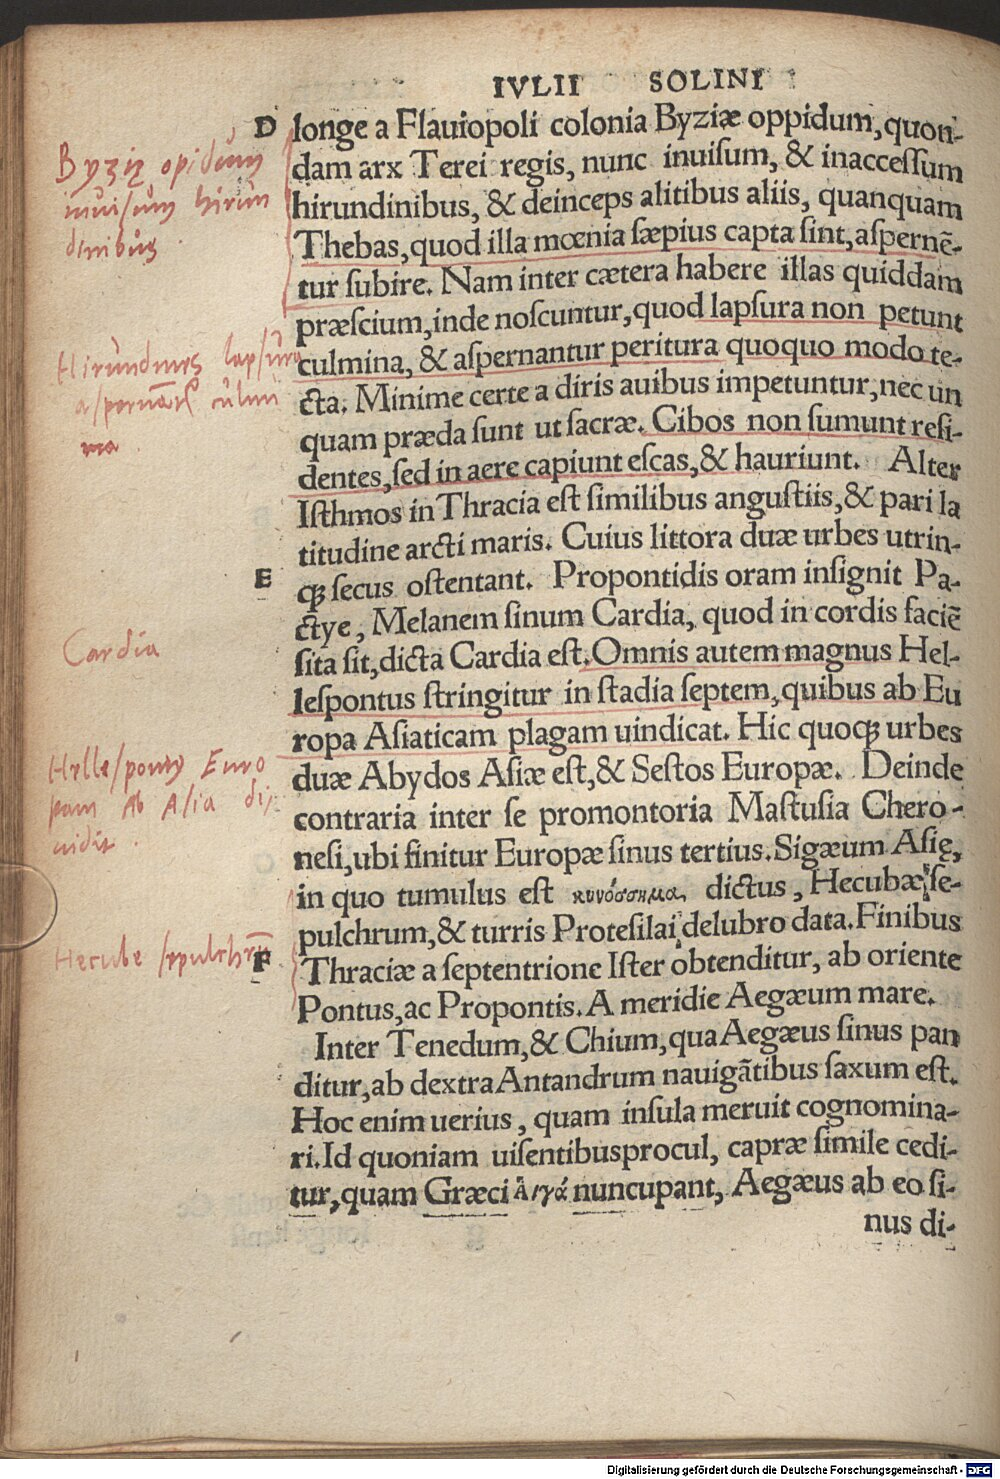 IVLII SOLINI
D longe a Flauiopoli colonia Byziæ oppidum, quon-
dam arx Terei regis, nunc inuisum, & inaccessum
hirundinibus, & deinceps alitibus aliis, quanquam
Thebas, quod illa mœnia sæpius capta sint, aspernē-
tur subire. Nam inter cætera habere illas quiddam
præscium, inde noscuntur, quod lapsura non petunt
culmina, & aspernantur peritura quoquo modo te-
cta. Minime certe a diris auibus impetuntur, nec un
quam præda sunt ut sacræ. Cibos non sumunt resi-
dentes, sed in aere capiunt escas, & hauriunt. Alter
Isthmos in Thracia est similibus angustiis, & pari la
titudine arcti maris. Cuius littora duæ urbes utrin-
E qꝫ secus ostentant. Propontidis oram insignit Pa-
ctye, Melanem sinum Cardia, quod in cordis faciē
sita sit, dicta Cardia est. Omnis autem magnus Hel-
lespontus stringitur in stadia septem, quibus ab Eu
ropa Asiaticam plagam uindicat. Hic quoqꝫ urbes
duæ Abydos Asiæ est, & Sestos Europæ. Deinde
contraria inter se promontoria Mastusia Chero-
nesi, ubi finitur Europæ sinus tertius. Sigæum Asię,
in quo tumulus est κυνόσσημα, dictus, Hecubæ se-
pulchrum, & turris Protesilai delubro data. Finibus
F Thraciæ a septentrione Ister obtenditur, ab oriente
Pontus, ac Propontis. A meridie Aegæum mare.
Inter Tenedum, & Chium, qua Aegæus sinus pan
ditur, ab dextra Antandrum nauigātibus saxum est.
Hoc enim uerius, quam insula meruit cognomina-
ri. Id quoniam uisentibus procul, capræ simile cedi-
tur, quam Græci ἀιγά nuncupant, Aegæus ab eo si-
nus di-
Byzię opidum
inuisum hirun
dinibus
Hirundines lapsura
culmi
na
Cardia
Hellespontꝰ Euro
pam Ab Asia di,
uidit.
Hecube sepulchrū
Digitalisierung gefördert durch die Deutsche Forschungsgemeinschaft - DFG